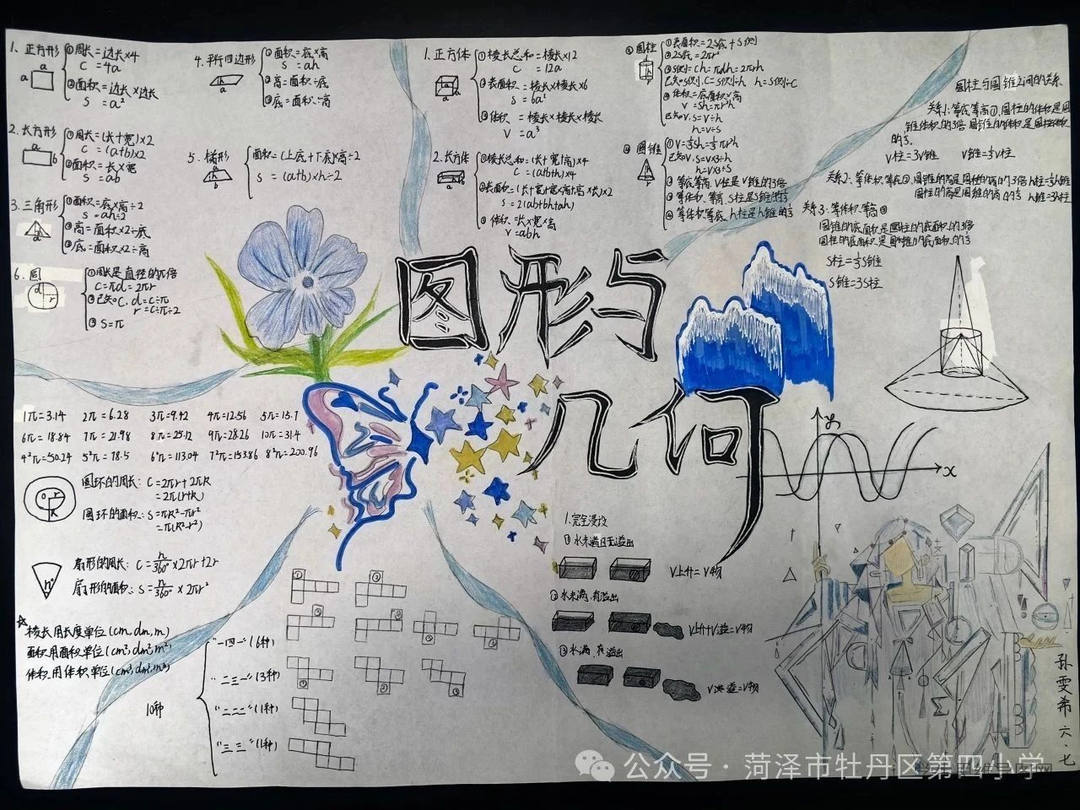 1. 正方形 ①周长 = 边长×4
C = 4a
②面积 = 边长×边长
S = a²
2. 长方形 ①周长 = (长+宽)×2
C = (a+b)×2
②面积 = 长×宽
S = ab
3. 三角形 ①面积 = 底×高÷2
S = ah÷2
②高 = 面积×2÷底
③底 = 面积×2÷高
4. 平行四边形 ①面积 = 底×高
S = ah
②高 = 面积÷底
③底 = 面积÷高
5. 梯形 面积 = (上底+下底)×高÷2
S = (a+b)×h÷2
6. 圆 ①周长是直径的π倍
C = πd = 2πr
②已知C, d = C÷π
r = C÷π÷2
③S = π
1. 正方体 ①棱长总和 = 棱长×12
C = 12a
②表面积 = 棱长×棱长×6
S = 6a²
③体积 = 棱长×棱长×棱长
V = a³
2. 长方体 ①棱长总和 = (长+宽+高)×4
C = (a+b+h)×4
②表面积 = (长×宽+宽×高+长×高)×2
S = 2(ab+bh+ah)
③体积 = 长×宽×高
V = abh
③ 圆柱 ①表面积 = 2S底+S侧
②S底 = πr²
③S侧 = Ch = πdh = 2πrh
④体积 = 底面积×高
V = Sh = πr²h
已知V, S = V÷h
h = V÷S
④ 圆锥 ①V = ⅓Sh = ⅓πr²h
已知V, S = V×3÷h
h = V×3÷S
②等底等高 V柱是V锥的3倍
③等体积、等高, S柱是S锥的⅓
④等体积等底, h柱是h锥的⅓
圆柱与圆锥之间的关系
关系1: 等底等高①, 圆柱的体积是圆
锥体积的3倍 圆锥的体积是圆柱体积
的⅓.
V柱 = 3V锥 V锥 = ⅓V柱
关系2: 等体积、等底②, 圆锥的高是圆柱的高的3倍 h柱 = ⅓h锥
圆柱的高是圆锥的高的⅓ h锥 = 3h柱
关系3: 等体积、等高③
圆锥的底面积是圆柱的底面积的3倍
圆柱的底面积是圆锥的底面积的⅓
S柱 = ⅓S锥
S锥 = 3S柱
图形与
几何
1π=3.14 2π=6.28 3π=9.42 4π=12.56 5π=15.7
6π=18.84 7π=21.98 8π=25.12 9π=28.26 10π=31.4
4²π=50.24 5²π=78.5 6²π=113.04 7²π=153.86 8²π=200.96
圆环的周长: C = 2πr+2πR
= 2π(r+R)
圆环的面积: S = πR²-πr²
= π(R²-r²)
扇形的周长: C = n/360°×2πr+2r
扇形的面积: S = n/360°×2πr²
☆棱长用长度单位(cm, dm, m)
面积用面积单位(cm², dm², m²)
体积用体积单位(cm³, dm³, m³)
"一四一"(6种)
"二三一"(3种)
10种
"二二二"(1种)
"三三"(1种)
1. 完全浸没
①水未满且无溢出
V上升=V物
②水未满, 有溢出
V上升+V溢=V物
③水满, 有溢出
V溢=V物
x
孙雯希 六·七
公众号·菏泽市牡丹区第四小学